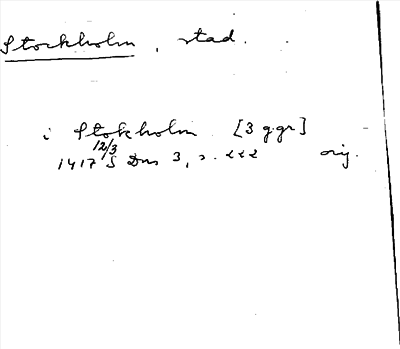 Stockholm, stad.
i Stokholm [3 ggr]
12/3
1417 S Dns 3, s. 222 orig.